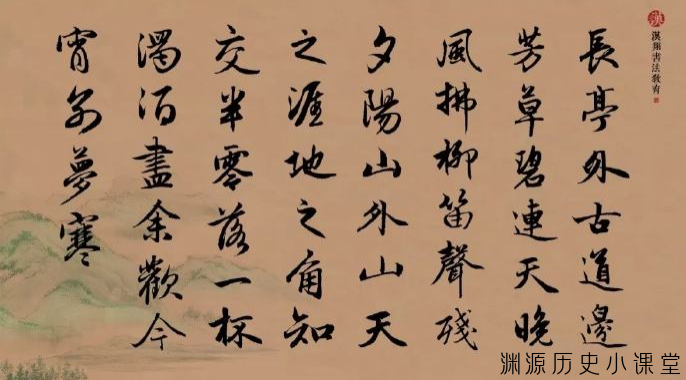 長亭外古道邊
芳草碧連天晚
風拂柳笛聲殘
夕陽山外山天
之涯地之角知
交半零落一杯
濁酒盡余歡今
宵別夢寒
漢翔書法教育
渊源历史小课堂